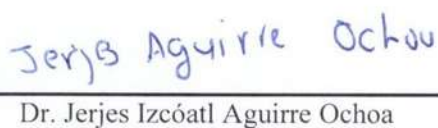 Jerjes Aguirre Ochoa
Dr. Jerjes Izcóatl Aguirre Ochoa